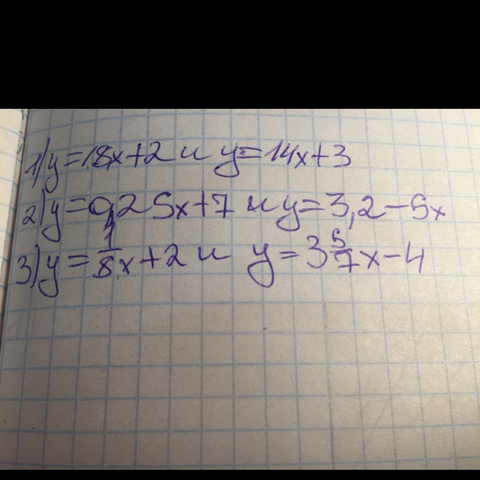 1) y=18x+2 и y=14x+3
2) y=0,25x+7 и y=3,2-5x
3) y=1/8x+2 и y=3 5/7x-4